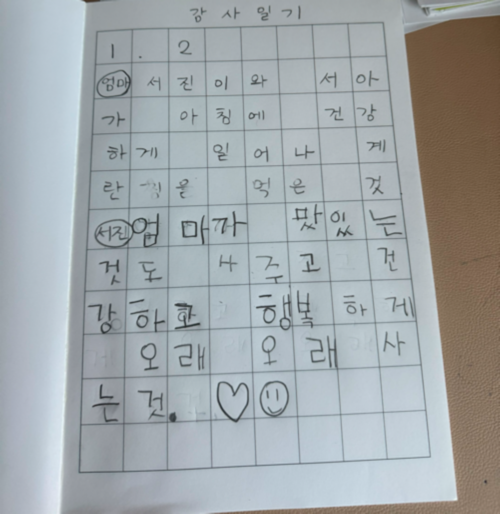 감사일기
1. 2
엄마 서진이와 서아
가 아침에 건강
하게 일어나 계
란 을 먹은 것
서진 엄마까 맜있는
것도 사주고 건
강하고 행복하게
오래오래 사
는 것.♡☺